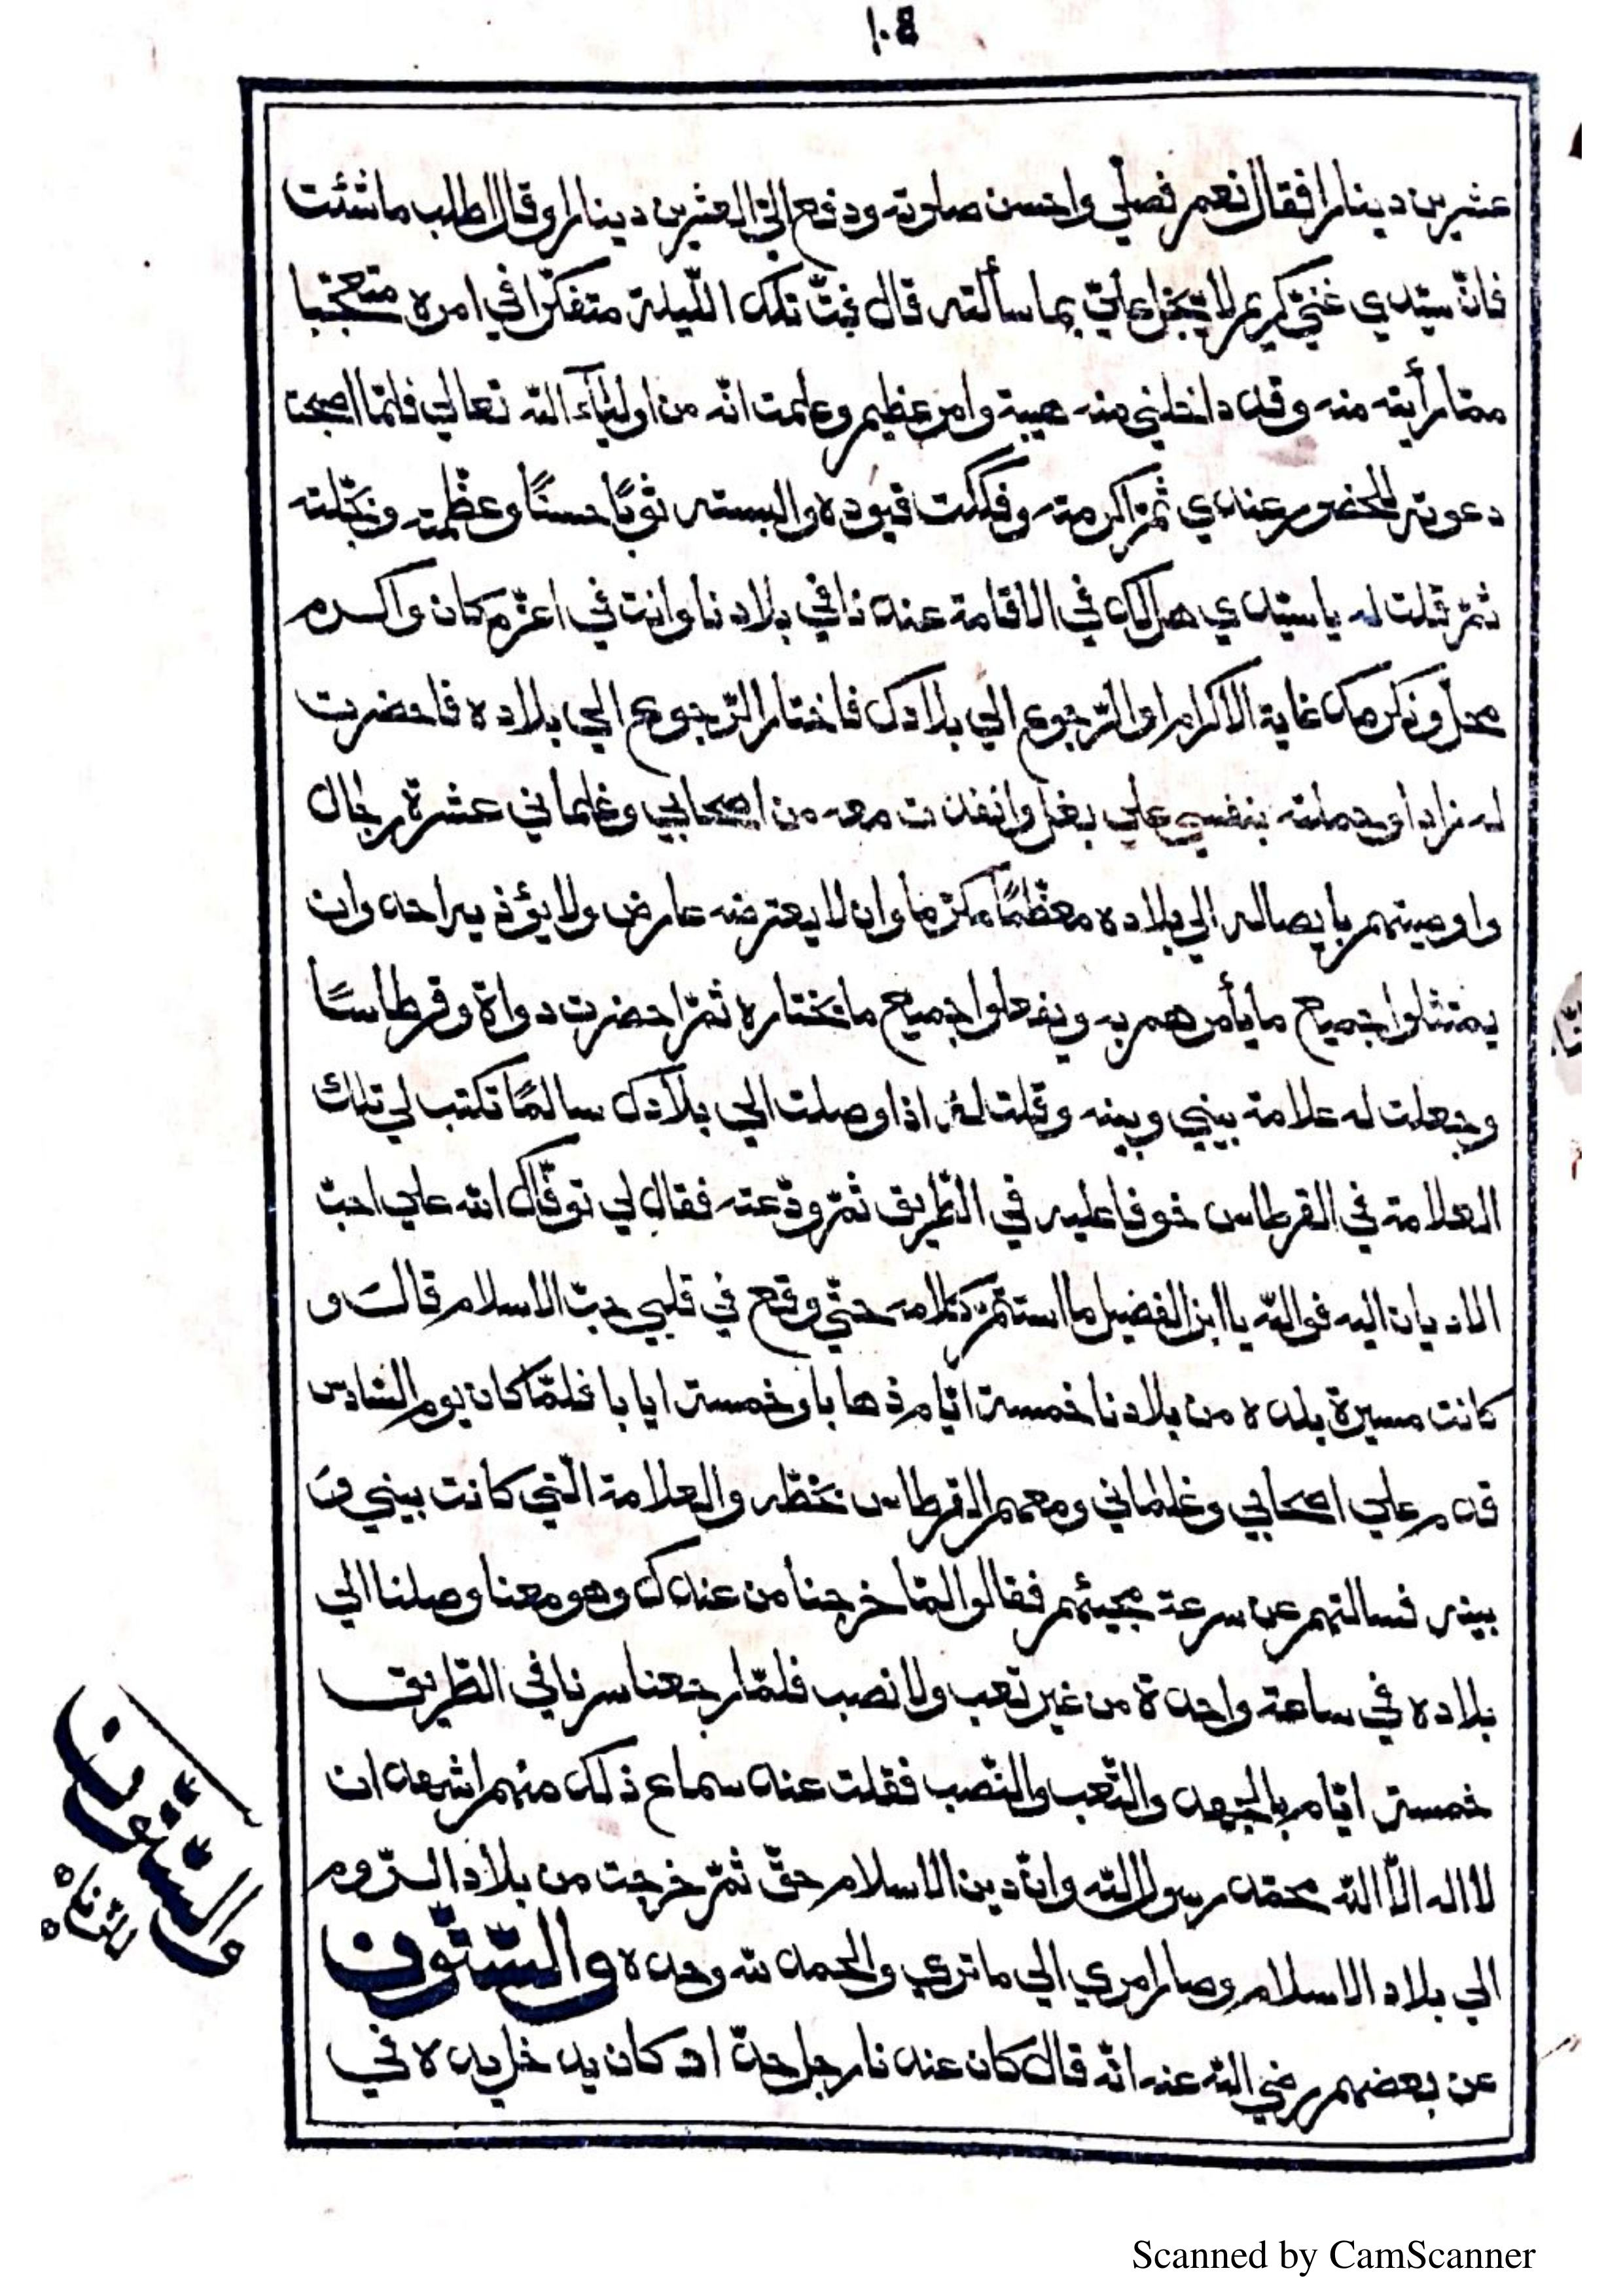 ١٠٤
عشرين دينارا فقال نعم فصلّي واحسن صلوته ودفع اليّ العشرين دينارا وقال اطلب ما شئت
فانّ سيّدي غنيّ كريم لا يبخل عليّ بما سألته قال فبتّ تلك اللّيلة متفكّرا في امره متعجّبا
ممّا رأيته منه وقد داخلني منه هيبة وامر عظيم وعلمت انّه من اوليآء اللّه تعالي فلمّا اصبحت
دعوته للحضور عندي ثمّ اكرمته وفككت قيوده والبسته ثوبًا حسنًا وعظّمته وبجّلته
ثمّ قلت له يا سيّدي هل لك في الاقامة عندنا في بلادنا وانت في اعزّ مكان واكرم
محلّ ونكرمك غاية الاكرام او الرّجوع الي بلادك فاختار الرّجوع الي بلاده فاحضرت
له زادا وحملته بنفسي علي بغل وانفدت معه من اصحابي وغلماني عشرة رجال
واوصيتهم بايصاله الي بلاده معظّمًا مكرّما وان لا يعترضه عارض ولا يؤذيه احد وان
يمتثلوا جميع ما يأمرهم به ويفعلوا جميع ما يختاره ثمّ احضرت دواة وقرطاسًا
وجعلت له علامة بيني وبينه وقلت له اذا وصلت الي بلادك سالمًا تكتب لي تلك
العلامة في القرطاس خوفا عليه في الطّريق ثمّ ودّعته فقال لي توفّاك اللّه علي احبّ
الاديان اليه فواللّه يا ابن الفضيل ما استتمّ كلامه حتّي وقع في قلبي حبّ الاسلام قال و
كانت مسيرة بلده من بلادنا خمسة ايّام ذهابا وخمسة ايابا فلمّا كان يوم السّادس
قدم علي اصحابي وغلماني ومعهم القرطاس بخطّه والعلامة الّتي كانت بيني و
بينه فسالتهم عن سرعة مجيئهم فقالوا لمّا خرجنا من عندك وهو معنا وصلنا الي
بلاده في ساعة واحدة من غير تعب ولا نصب فلمّا رجعنا سرنا في الطّريق
خمسة ايّام بالجهد والتّعب والنّصب فقلت عند سماع ذلك منهم اشهد ان
لا اله الّا اللّه محمّد رسول اللّه وانّ دين الاسلام حقّ ثمّ خرجت من بلاد الرّوم
الي بلاد الاسلام وصار امري الي ما تري والحمد للّه وحده والسّتّون
عن بعضهم رضي اللّه عنه انّه قال كان عندنا رجل حدّاد كان يدخل يده في
والسّتّون
Scanned by CamScanner